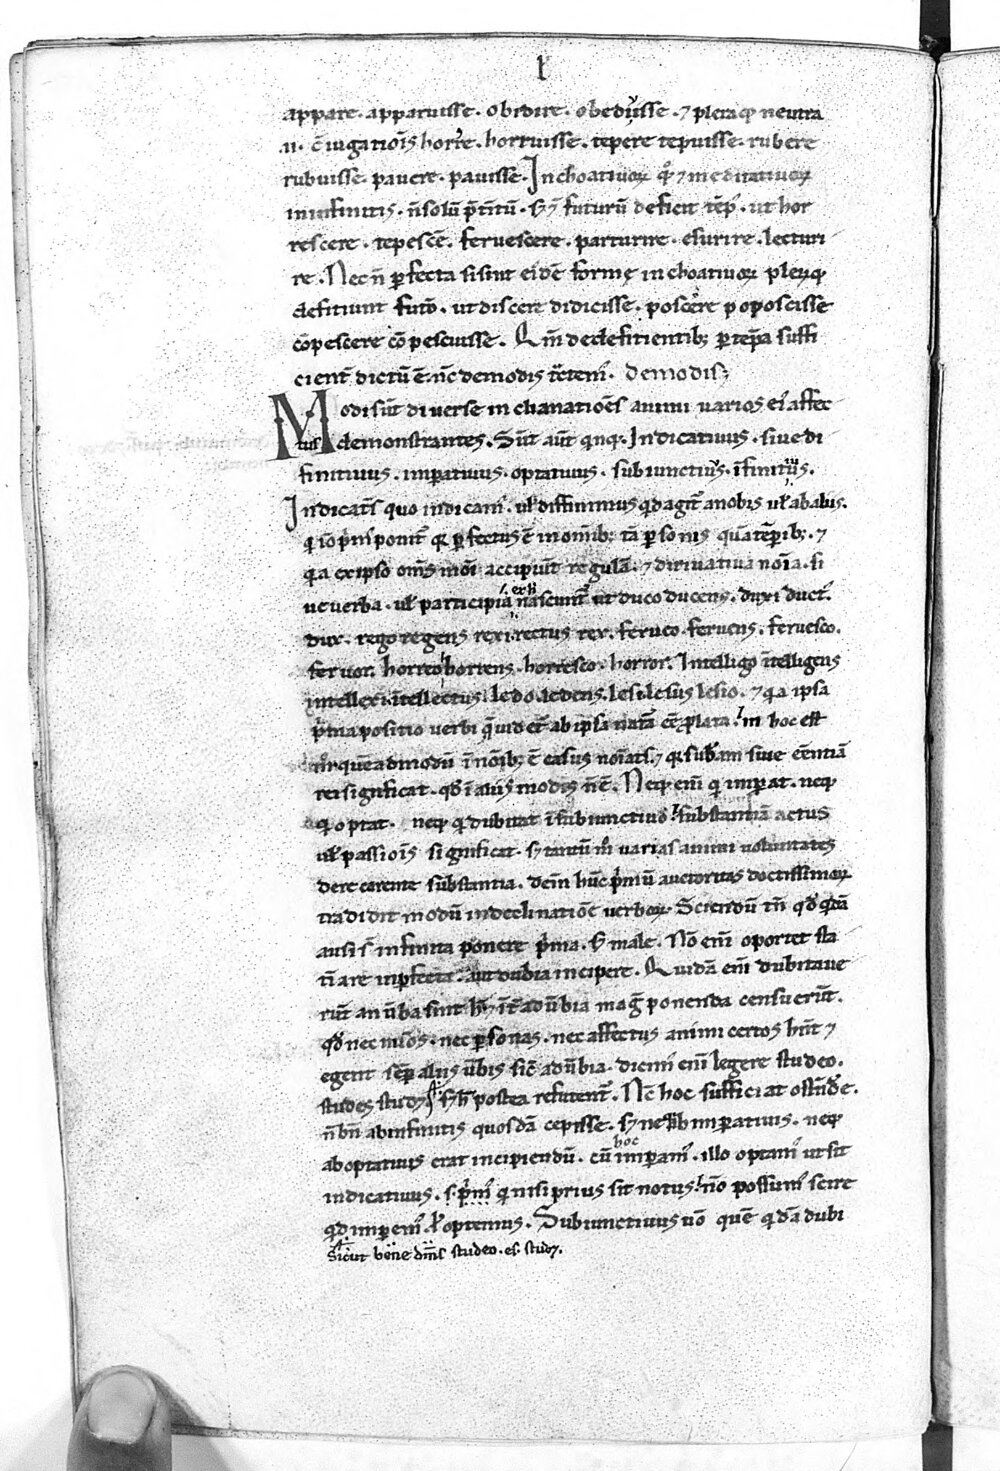 appare · apparuisse · obedire · obedijsse · ⁊ pleraq; neutra
.ii. c̄iugatiōis horrẽ · horruisse · tepere tepuisse · rubere
rubuisse · pavere · pavisse · Inchoativoꝝ q̊ꝫ ⁊ meditativoꝝ
in infinitis · n̄ solū p̄tītū · sꝫ ⁊ futurū deficit tēp̄ · ut hor
rescere · tepescē · fervescere · parturire · esurire · lecturi
re · Nec n̄ ꝑfecta si sint eidē formę inchoativoꝝ pleriq;
defitiunt futō · ut discere didicisse · poscere poposcisse
cōpescere cōpescuisse · Qm̄ de defitientib; ꝑ tēpa suffi
cient̄ dictū ē · nc̄ de modis tctem̄ · De modis;
Modi sūt diverse inclinatiōes animi varios ei' affec
tus demonstrantes · Sūt aūt qnq; · Indicativus · sive di
finitivus · imꝑativus · optativus · subiunctiv9 · īfinitiv9 ·
Indicat̄s quo indicam' · ul̄ diffinimus qd agit̄ a nobis ul̄ ab aliis ·
q iō p̄m' ponit̄ qꝛ ꝑfectus ē in om̄ib; tā ꝑsonis quā tēꝑib; · ⁊
q a ex ipso om̄s moī accipiūt regulā · ⁊ dirivativa noīa · si
ve verba · ul̄ participia nascunt̄ ut duco ducens · duxi duct9 ·
dux · rego regens rexi · rectus rex · ferveo fervens · fervesco ·
fervor · horreo horrens · horresco · horror · Intelligo ītelligens
intellexi · ītellectus · ledo ledens · lesi lesus lesio · ⁊ q a ipsa
p̄ma positio verbi
quēadmodū ī noīb; ē casus noīat̄s · ⁊ qꝛ sub̄am sive eēntiā
rei significat · qd̄ ī aliis modis n̄ ē · Neq; eni q imꝑat · neq;
q optat · neq; q dubitat ī subiunctivo substantiā actus
ul̄ passiōis significat · sꝫ tantū m̄ varias animi voluntates
de re carente substantia · dein̄ hūc p̄mū auctoritas doctissimoꝝ
tradidit modū in declinatiōe verboꝝ · Sciendū tn̄ qd̄ qdā
ausi s̄ infinita ponere p̄ma · sꝫ male · Nō eni oportet sta
tī a re inꝑfecta aut dubia incipere · Quidā eni dubitave
rūt an ūba sint
qd̄ nec nu͂os · nec ꝑsonas · nec affectus animi certos hn̄t ⁊
egent sēꝑ aliis ūbis sic̄ adūbia · dicim' eni legere studeo ·
studes studꝫ · sꝫ h̄ postea refutent̄ · Nc̄ hoc sufficiat ostūdẽ ·
n̄ bn̄ ab infinitis quosdā cepisse · sꝫ nec ab imperativis · neq;
ab optativis erat incipiendū · cū hoc imꝑam' · illo optam' ut sit
indicativus · s · p̄m' q nisi prius sit notus nō possum' scire
qd imꝑem' ul̄ optemus · Subiunctivus uō quē qdā dubi
Sicut bene dīms studeo · es · studꝫ ·